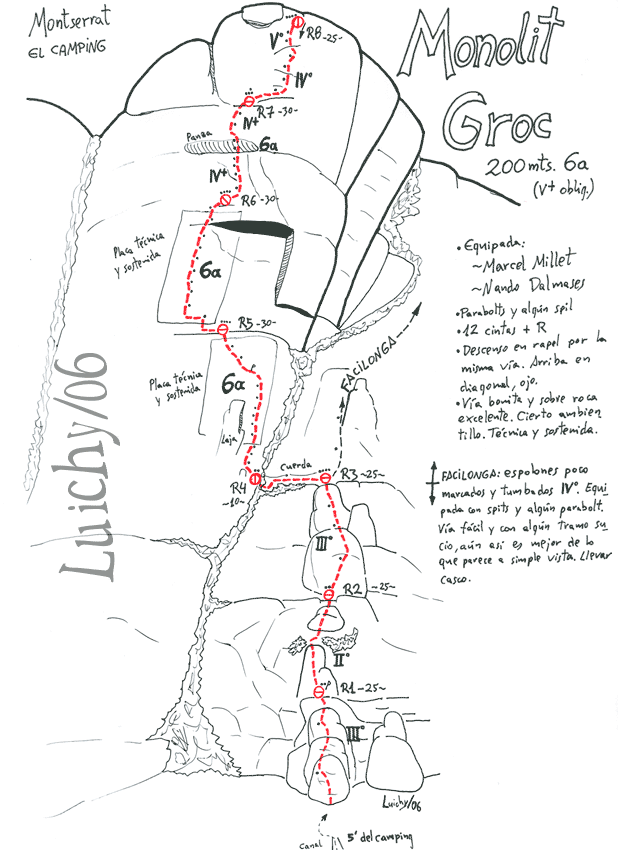 Montserrat
EL CAMPING
Monolit
Groc
200 mts. 6a
(V+ oblig.)
R8 -25-
V°
IV°
R7 -30-
IV+
Panza
6a
IV+
R6 -30-
Placa técnica
y sostenida
6a
• Equipada:
~ Marcel Millet
~ Nando Dalmases
• Parabolts y algún spit
• 12 cintas + R
• Descenso en rapel por la
misma vía. Arriba en
diagonal, ojo.
• Vía bonita y sobre roca
excelente. Cierto ambien
tillo. Técnica y sostenida.
R5 -30-
Placa técnica
y sostenida
6a
Laja
FACILONGA
Luichy/06
cuerda
R4
~10~
R3 ~25~
FACILONGA: espolones poco
marcados y tumbados IV°. Equi
pada con spits y algún parabolt.
Vía fácil y con algún tramo su
cio, aún así es mejor de lo
que parece a simple vista. Llevar
casco.
III°
R2 ~25~
II°
R1 -25~
III°
Luichy/06
Canal
5' del camping